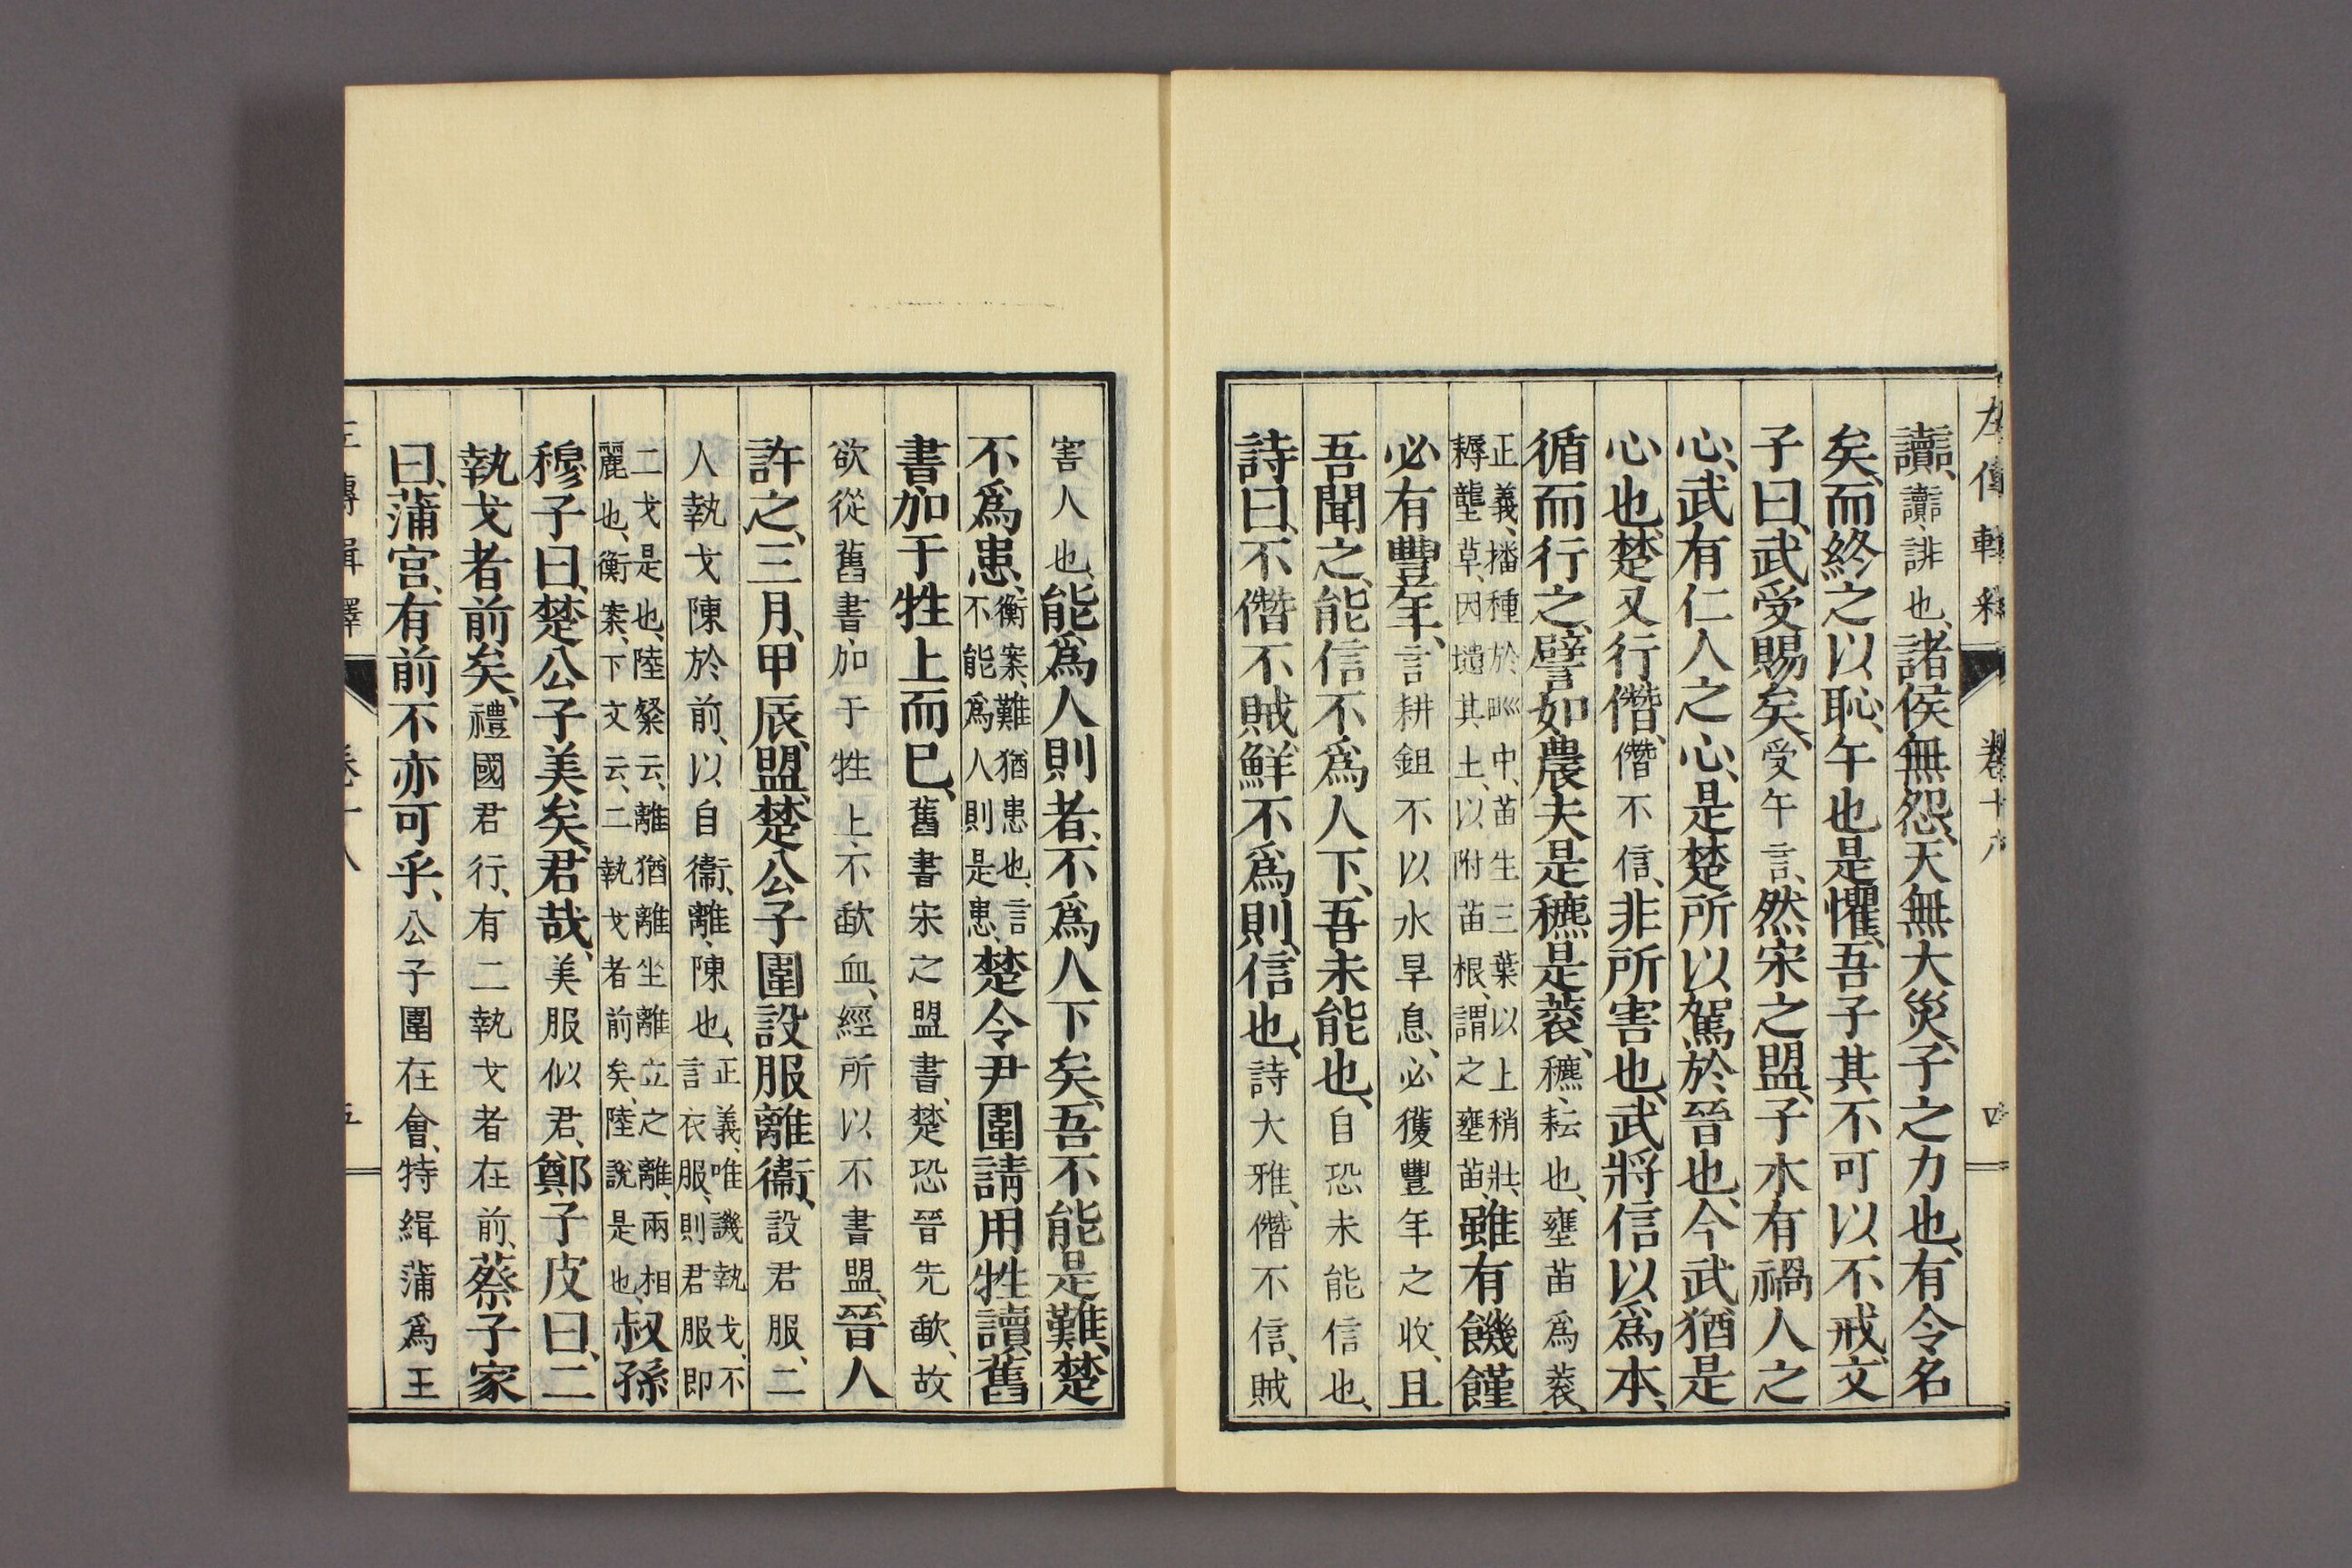 讟、讟、誹也、諸侯無怨、天無大災、子之力也、有令名
矣、而終之以恥、午也是懼、吾子其不可以不戒、文
子曰、武受賜矣、受午言、然宋之盟、子木有禍人之
心、武有仁人之心、是楚所以駕於晉也、今武猶是
心也、楚又行僭、僭不信、非所害也、武將信以爲本、
循而行之、譬如農夫是穮是蓘、穮、耘也、壅苗爲蓘、
正義、播種於甽中、苗生三葉以上稍壯、
耨壟草、因壝其土、以附苗根、謂之壅苗、雖有饑饉
必有豐年、言耕鉏不以水旱息、必獲豐年之收、且
吾聞之、能信不爲人下、吾未能也、自恐未能信也、
詩曰、不僭不賊鮮不爲則、信也、詩大雅、僭不信、賊
左傳輯釋 卷十八 四
害人也、能爲人則者、不爲人下矣、吾不能是難、楚
不爲患、衡案、難猶患也、言
不能爲人則是患、楚令尹圍請用牲讀舊
書加于牲上而已、舊書宋之盟書、楚恐晉先歃、故
欲從舊書、加于牲上、不歃血、經所以不書盟、晉人
許之、三月、甲辰、盟、楚公子圍設服離衞、設君服、二
人執戈陳於前、以自衞、離、陳也、正義、唯譏執戈、不
言衣服、則君服即
二戈是也、陸粲云、離猶離坐離立之離、兩相
麗也、衡案、下文云、二執戈者前矣、陸說是也、叔孫
穆子曰、楚公子美矣、君哉、美服似君、鄭子皮曰、二
執戈者前矣、禮國君行、有二執戈者在前、蔡子家
曰、蒲宮、有前不亦可乎、公子圍在會、特緝蒲爲王